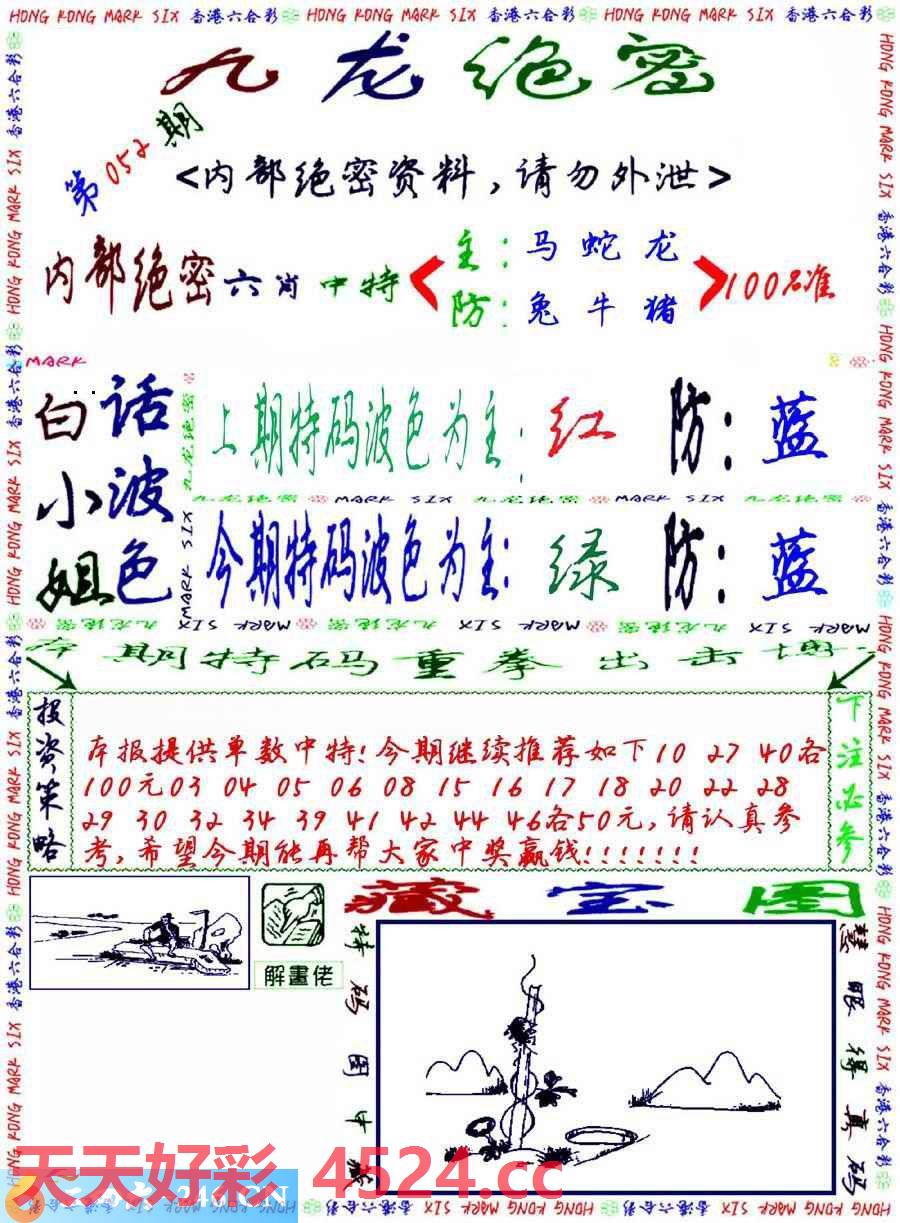 HONG KONG MARK SIX 香港六合彩 HONG KONG MARK SIX 香港六合彩 HONG KONG MARK SIX 香港六合彩
九龙绝密
第052期
<内部绝密资料,请勿外泄>
内部绝密六肖中特
主:马蛇龙
防:兔牛猪
100%准
MARK
白话小姐波色
上期特码波色为主:红 防:蓝
九龙绝密 MARK SIX 九龙绝密 MARK SIX 九龙绝密
今期特码波色为主:绿 防:蓝
九龙绝密 MARK SIX
本期特码重拳出击博
投资策略
本报提供单数中特!今期继续推荐如下10 27 40各
100元03 04 05 06 08 15 16 17 18 20 22 28
29 30 32 34 39 41 42 44 46各50元,请认真参
考,希望今期能再帮大家中奖赢钱!!!!!!!
下注必参
解畫佬
藏宝图
特码图中
慧眼得真码
天天好彩 4524.cc
246.CN